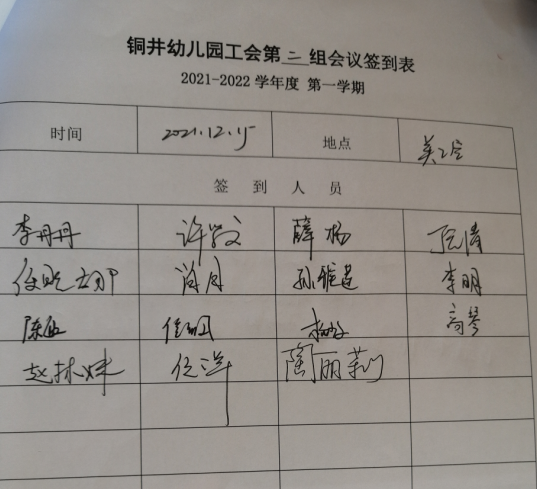 铜井幼儿园工会第二组会议签到表
2021-2022 学年度 第一学期
时间 2021.12.15 地点 美工室
签 到 人 员
李丹丹 许敏文 薛杨 阮清
肖月 孙维莲 李明
陈 高琴
赵林娣 任洋 陶丽莉